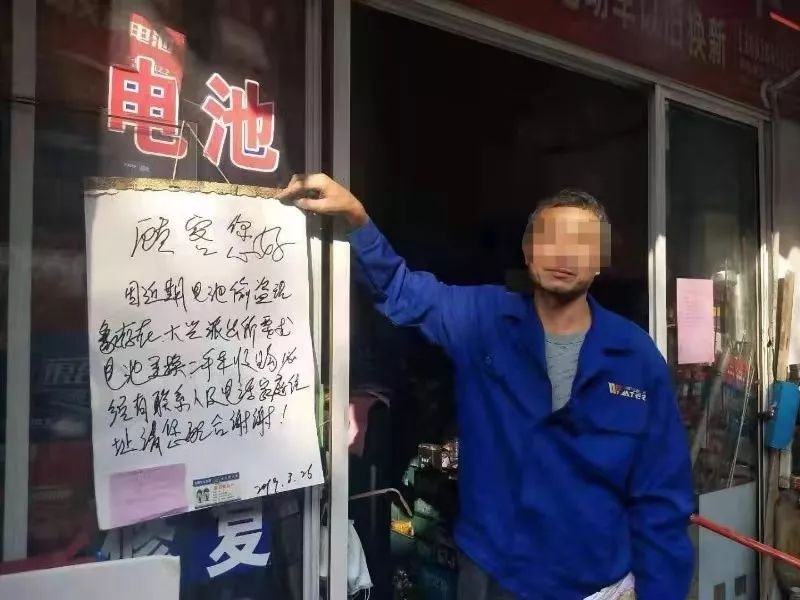 电池
电池
以旧换新
顾客您好
因近期电池偷盗现
象存在.大兴派出所要求
电池更换.二手车收购必
经有联系人及电话家庭住
址请您配合谢谢！
2019.3.26
修复